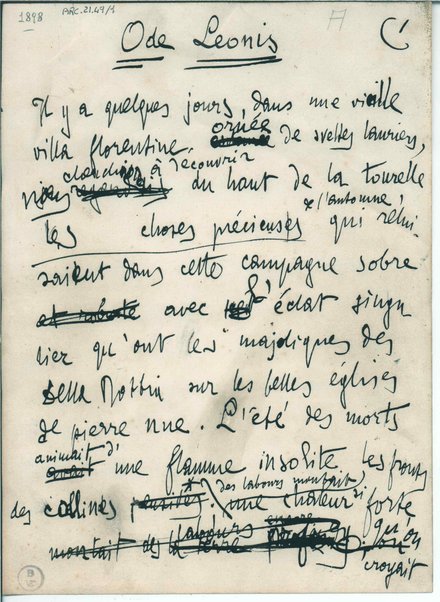 1898
ARC.21.49/1
A
Ode Leonis
Il y a quelques jours, dans une vieille
villa florentine ornée de sveltes lauriers,
à découvrir
nous du haut de la tourelle
& l'automne
les choses précieuses qui relui-
saient dans cette campagne sobre
avec l'éclat singu
lier qu'ont les majoliques des
Della Robbia sur les belles églises
de pierre nue. L'été des morts
animait d'
une flamme insolite les fronts
des labours montait
des collines, une chaleur si forte
montait des labours qu'on
croyait
B